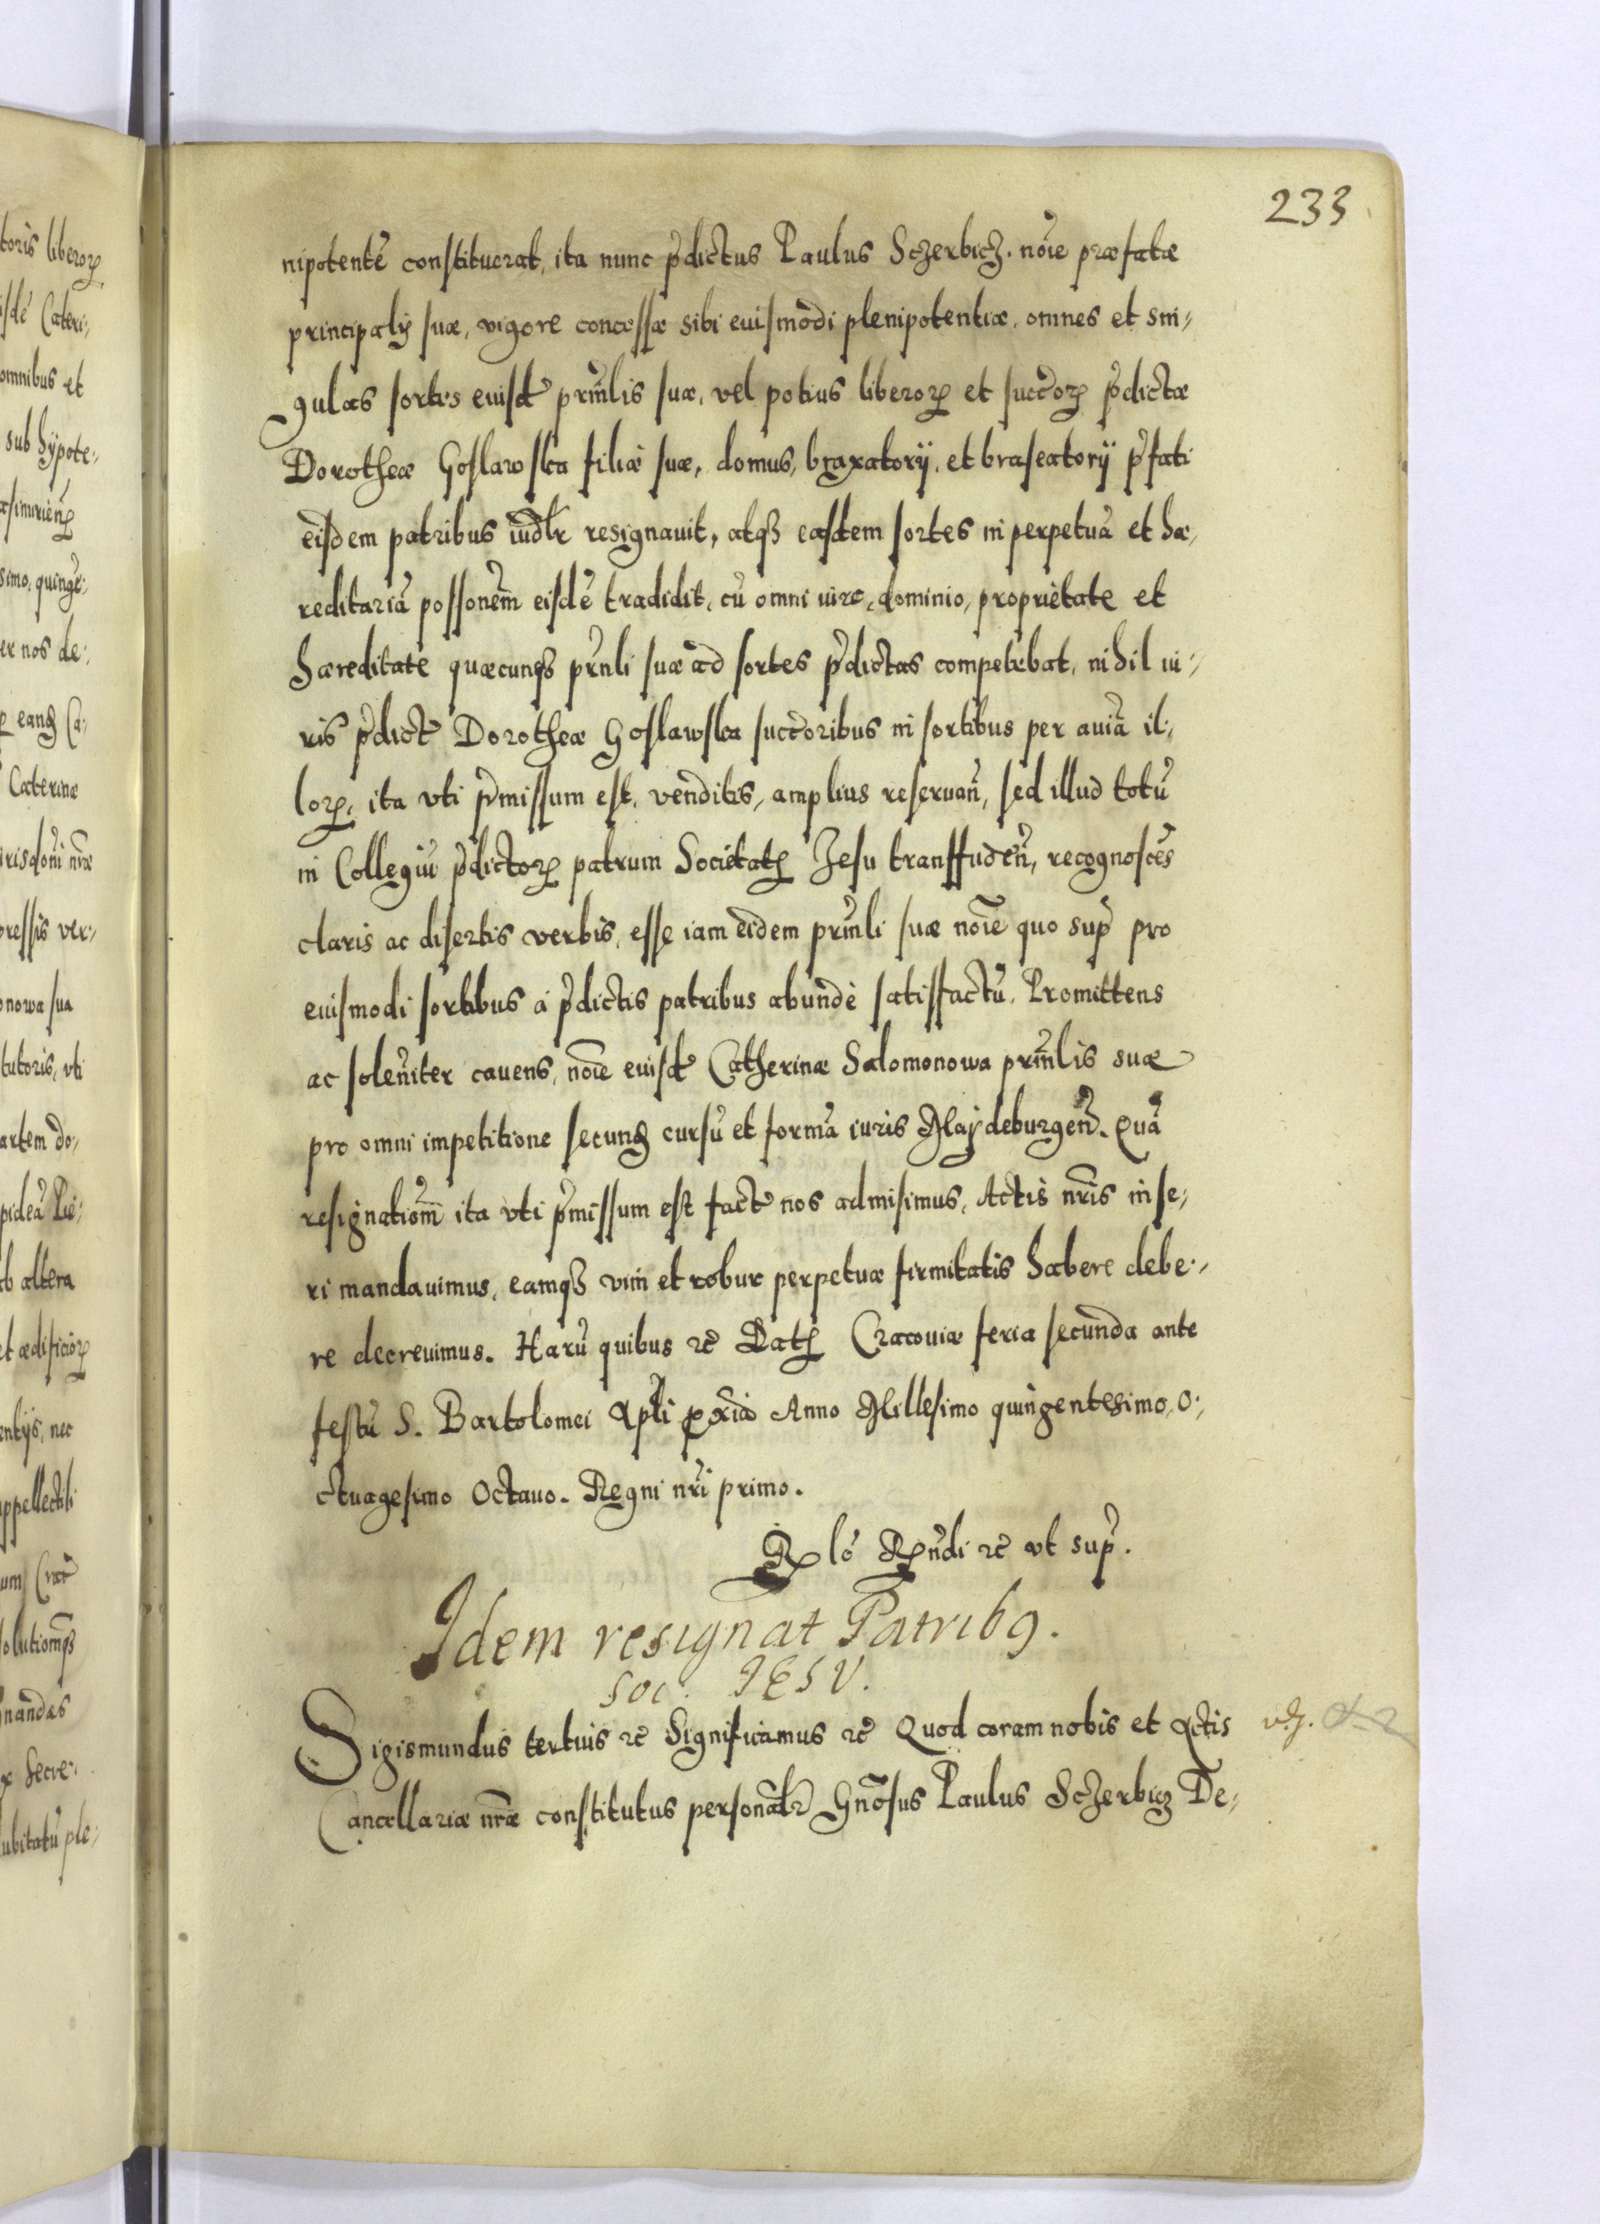 233
nipotentē constituerat, ita nunc p̄dictus Paulus Sczerbicz. nōīe præfatæ
principalis suæ, vigore concessæ sibi eiusmodi plenipotentiæ, omnes et sin,,
gulas sortes eiusdē prīnlis suæ, vel potius liberorꝝ et succōrꝝ p̄dictæ
Dorotheæ Goslawska filiæ suæ, domus, braxatorij, et braseatorij p̄fati
eisdem patribus iudłr resignauit, atqꝫ easdem sortes in perpetuā et hæ,,
reditariā possonēm eisdē tradidit, cū omni iure, dominio, proprietate et
hæreditate quæcunqꝫ prīnli suæ ad sortes p̄dictas competebat, nihil iu,,
ris p̄dictē Dorotheæ Goslawska succōribus in sortibus per auiā il,,
lorꝝ, ita vti p̄missum est, venditis, amplius reseruan̄, sed illud totū
in Collegiū p̄dictorꝝ patrum Societatis Jesu transfuden̄, recognoscēs
claris ac disertis verbis, esse iam eidem prīnli suæ nōīe quo sup̄ pro
eiusmodi sortibus à p̄dictis patribus abundè satisfactū. Promittens
ac solen̄iter cauens, nōīe eiusdē Catherinæ Salomonowa prīnlis suæ
pro omni impetitione secundū cursū et formā iuris Maydeburgen̄. Quā
resignatiōm̄ ita vti p̄missum est factē nos admisimus, Actis nrīs inse,,
ri mandauimus, eamqꝫ vim et robur perpetuæ firmitatis habere debe,,
re decreuimus. Harū quibus ꝛc̄ Datꝭ Cracouiæ feria secunda ante
festū S. Bartolomei Apłi pxīa Anno Millesimo quingentesimo, o,,
ctuagesimo Octauo. Regni nrī primo.
Rlō Rndi ꝛc̄ vt sup̄.
Idem resignat Patribꝯ.
Soc. IESV.
Sigismundus tertius ꝛc̄ Significamus ꝛc̄ Quod coram nobis et Actis
Cancellariæ nræ constitutus personałr Gnōsus Paulus Sczerbicz De,,